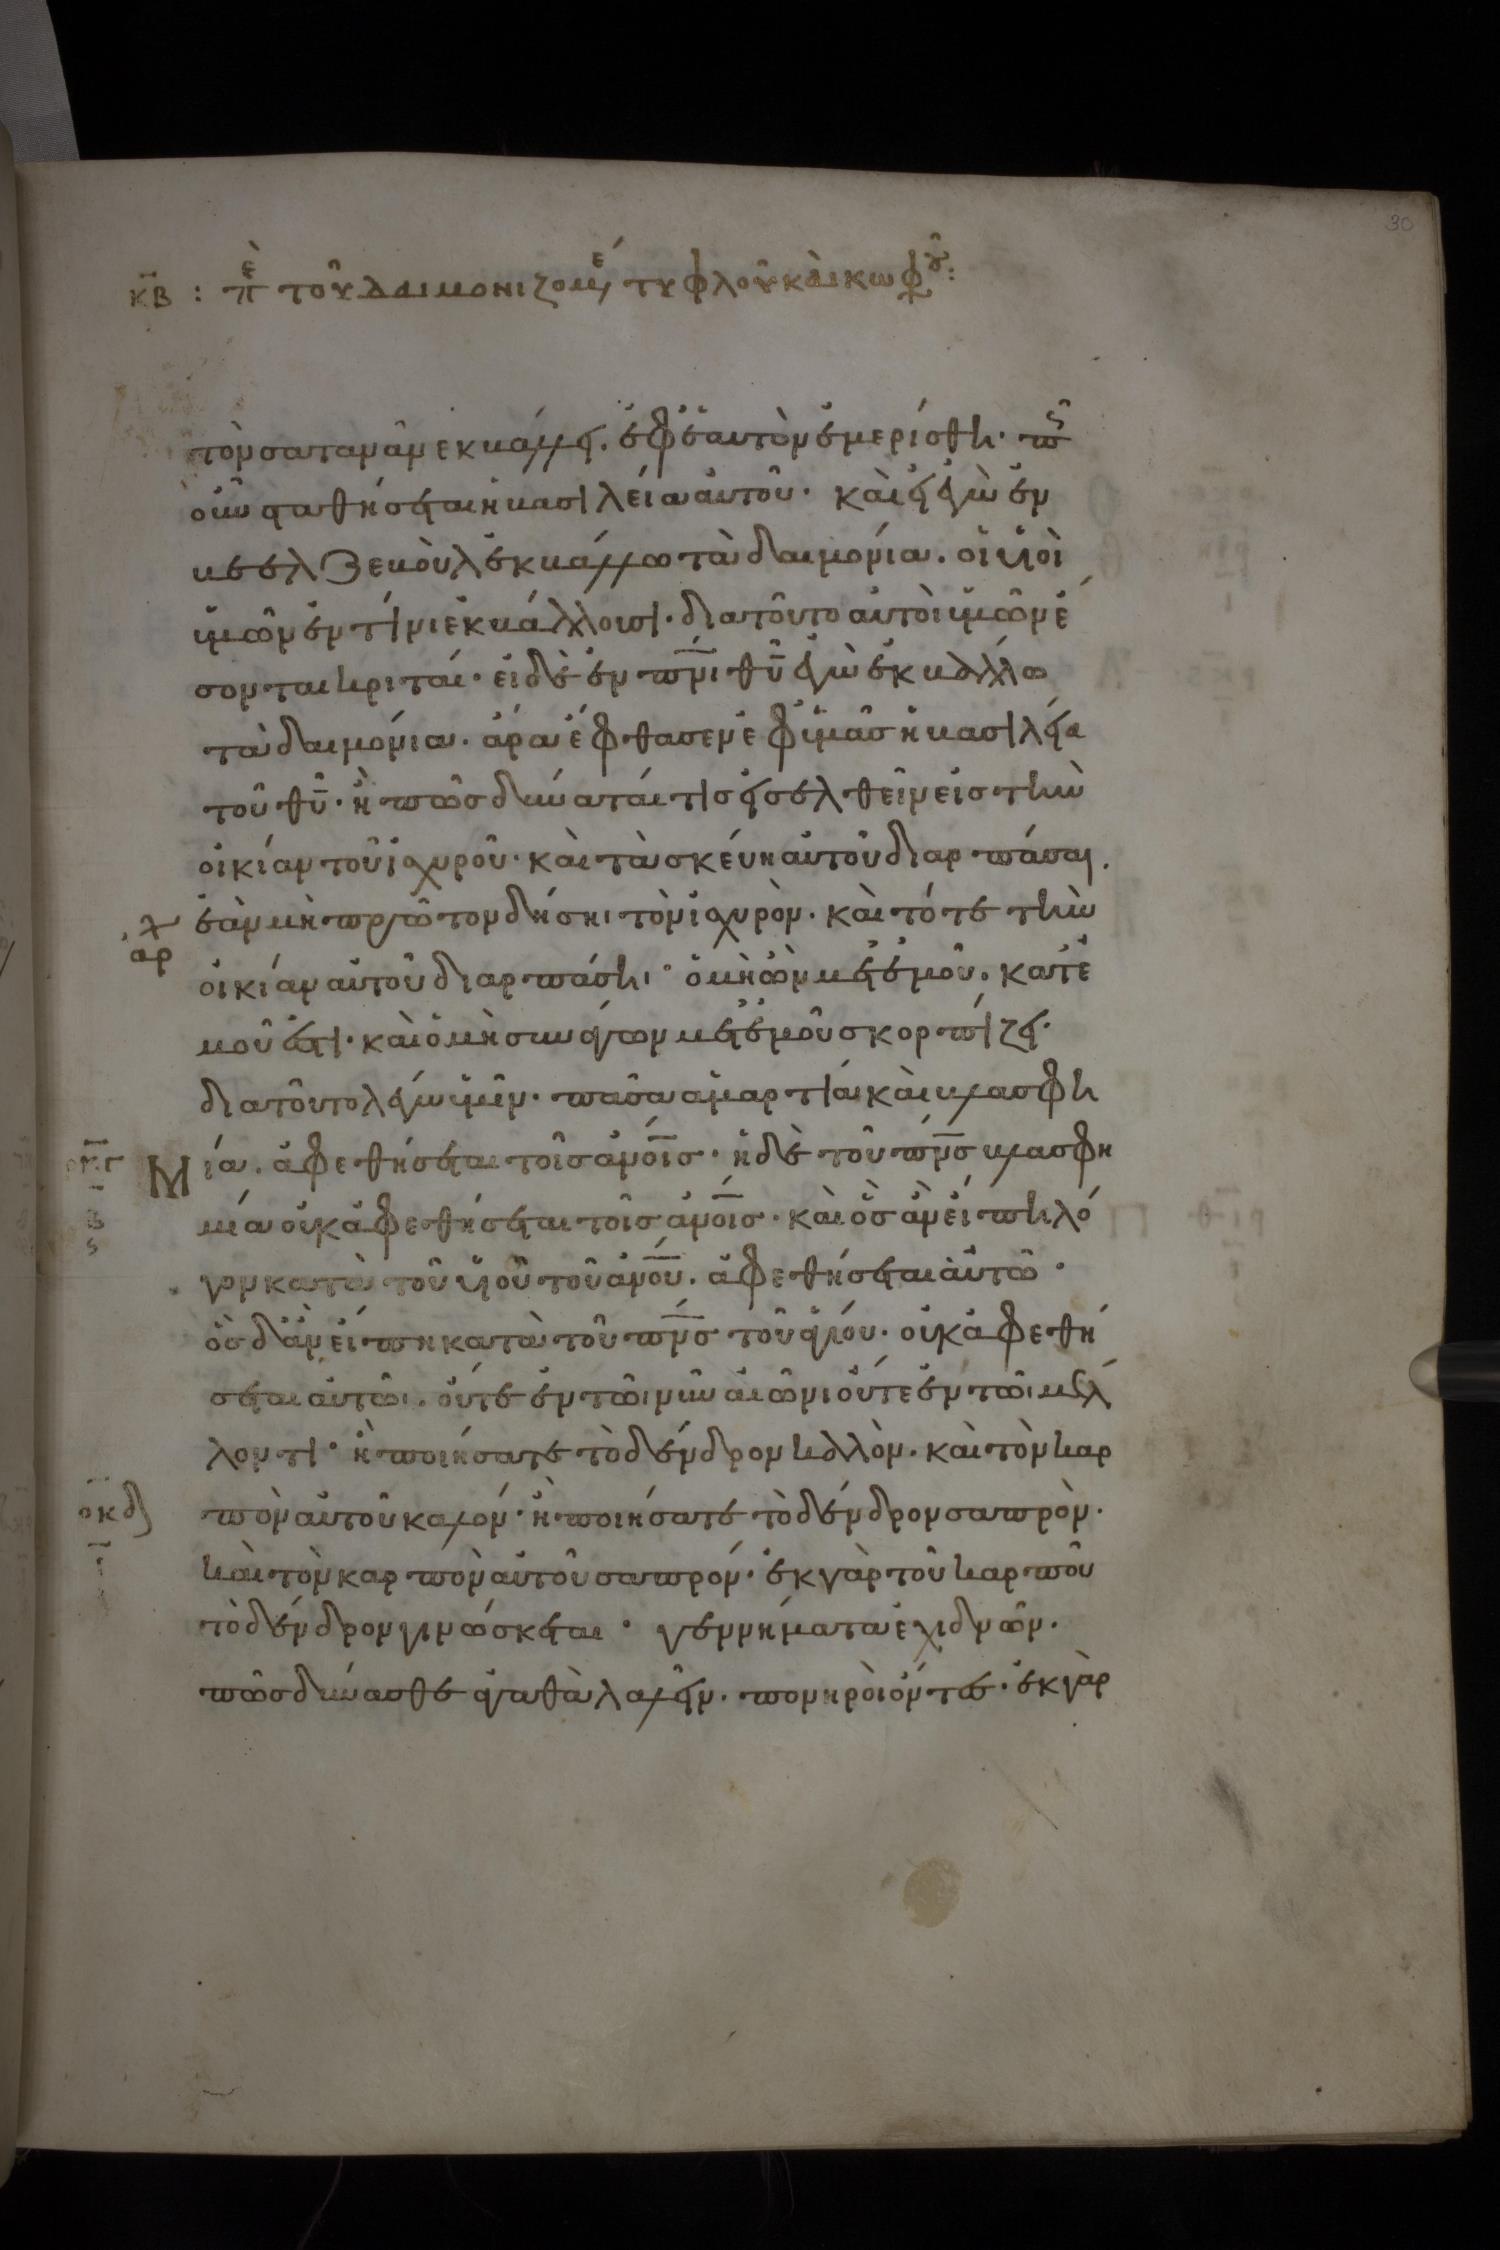 30
κβ : πὲ τοῦ δαιμονιζομέ τυφλοῦ καὶ κωφοῦ :
τὸν σατανᾶν ἐκβάλλει. ἐφ ἑαυτὸν ἐμερίσθη· πῶς
οὖν σταθήσεται ἡ βασιλεία αὐτοῦ· καὶ εἰ ἐγὼ ἐν
βεελζεβοὺλ ἐκβάλλω τὰ δαιμόνια. οἱ υἱοὶ
ὑμῶν ἐν τίνι ἐκβάλλουσι· διατοῦτο αὐτοὶ ὑμῶν ἔ
σονται κριταί· εἰ δὲ ἐν πνι θυ ἐγὼ ἐκβάλλω
τὰ δαιμόνια. ἄρα ἔφθασεν ἐφ ὑμᾶς ἡ βασιλεία
τοῦ θυ· ἢ πῶς δύναταί τις εἰσελθεῖν εἰς τὴν
οἰκίαν τοῦ ἰσχυροῦ· καὶ τὰ σκεύη αὐτοῦ διαρπάσαι.
ἐὰν μὴ πρῶτον δήσηι τὸν ἰσχυρὸν. καὶ τότε τὴν
αρχ
οἰκίαν αὐτοῦ διαρπάσηι· ὁ μὴ ὢν μετ ἐμοῦ. κατ ἐ
μοῦ ἐστι· καὶ ὁ μὴ συνάγων μετ ἐμοῦ σκορπίζει·
διατοῦτο λέγω ὑμῖν· πᾶσα ἁμαρτία καὶ βλασφη
ρκγ
β
ς
Μία. ἀφεθήσεται τοῖς ἀνοις· ἡ δὲ τοῦ πνς βλασφη
μία οὐκ ἀφεθήσεται τοῖς ἀνοις· καὶ ὃς ἂν εἴπη λό
γον κατὰ τοῦ υἱοῦ τοῦ ἀνου. ἀφεθήσεται αὐτῶ·
ὃς δ ἂν εἴπη κατὰ τοῦ πνς τοῦ ἁγίου· οὐκ ἀφεθή
σεται αὐτῶι. οὔτε ἐν τῶι νῦν αἰῶνι οὔτε ἐν τῶι μέλ
λοντι· ἢ ποιήσατε τὸ δένδρον καλὸν. καὶ τὸν καρ
ρκδ
ι
πὸν αὐτοῦ καλόν· ἢ ποιήσατε τὸ δένδρον σαπρὸν.
καὶ τὸν καρπὸν αὐτοῦ σαπρόν· ἐκ γὰρ τοῦ καρποῦ
τὸ δένδρον γινώσκεται· γεννήματα ἐχιδνῶν.
πῶς δύνασθε ἀγαθὰ λαλεῖν. πονηροὶ ὄντες· ἐκ γὰρ